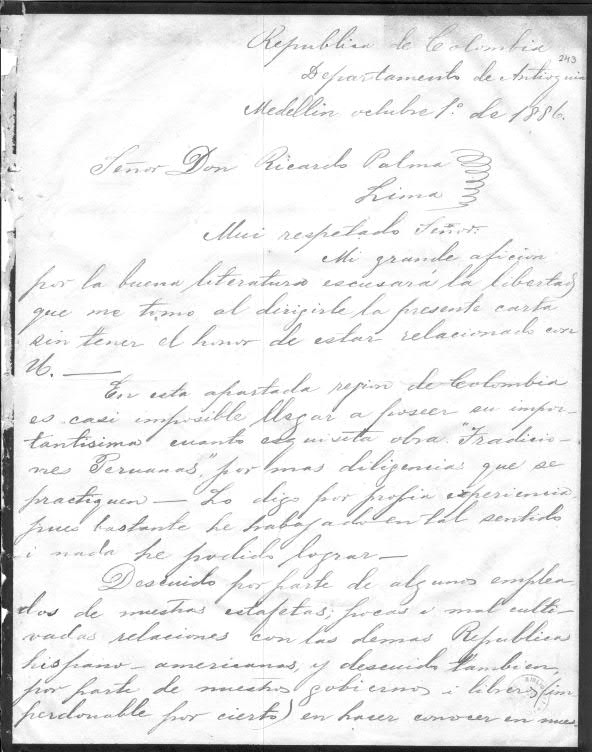 Republica de Colombia
243
Departamento de Antioquia
Medellin octubre 1º de 1886.
Señor Don Ricardo Palma
Lima
Mui respetado Señor:
Mi grande aficion
por la buena literatura escusará la libertad
que me tomo al dirigirle la presente carta
sin tener el honor de estar relacionado con
U. —
En esta apartada rejion de Colombia
es casi imposible llegar a poseer su impor-
tantisima cuanto esquisita obra "Tradicio-
nes Peruanas", por mas diligencias que se
practiquen — Lo digo por propia esperiencia
pues bastante he trabajado en tal sentido
i nada he podido lograr —
Descuido por parte de algunos emplea-
dos de nuestras estafetas; pocas i mal culti-
vadas relaciones con las demas Republicas
hispano-americanas, y descuido tambien,
por parte de nuestros gobiernos i libreros (im-
perdonable por cierto) en hacer conocer en nues-